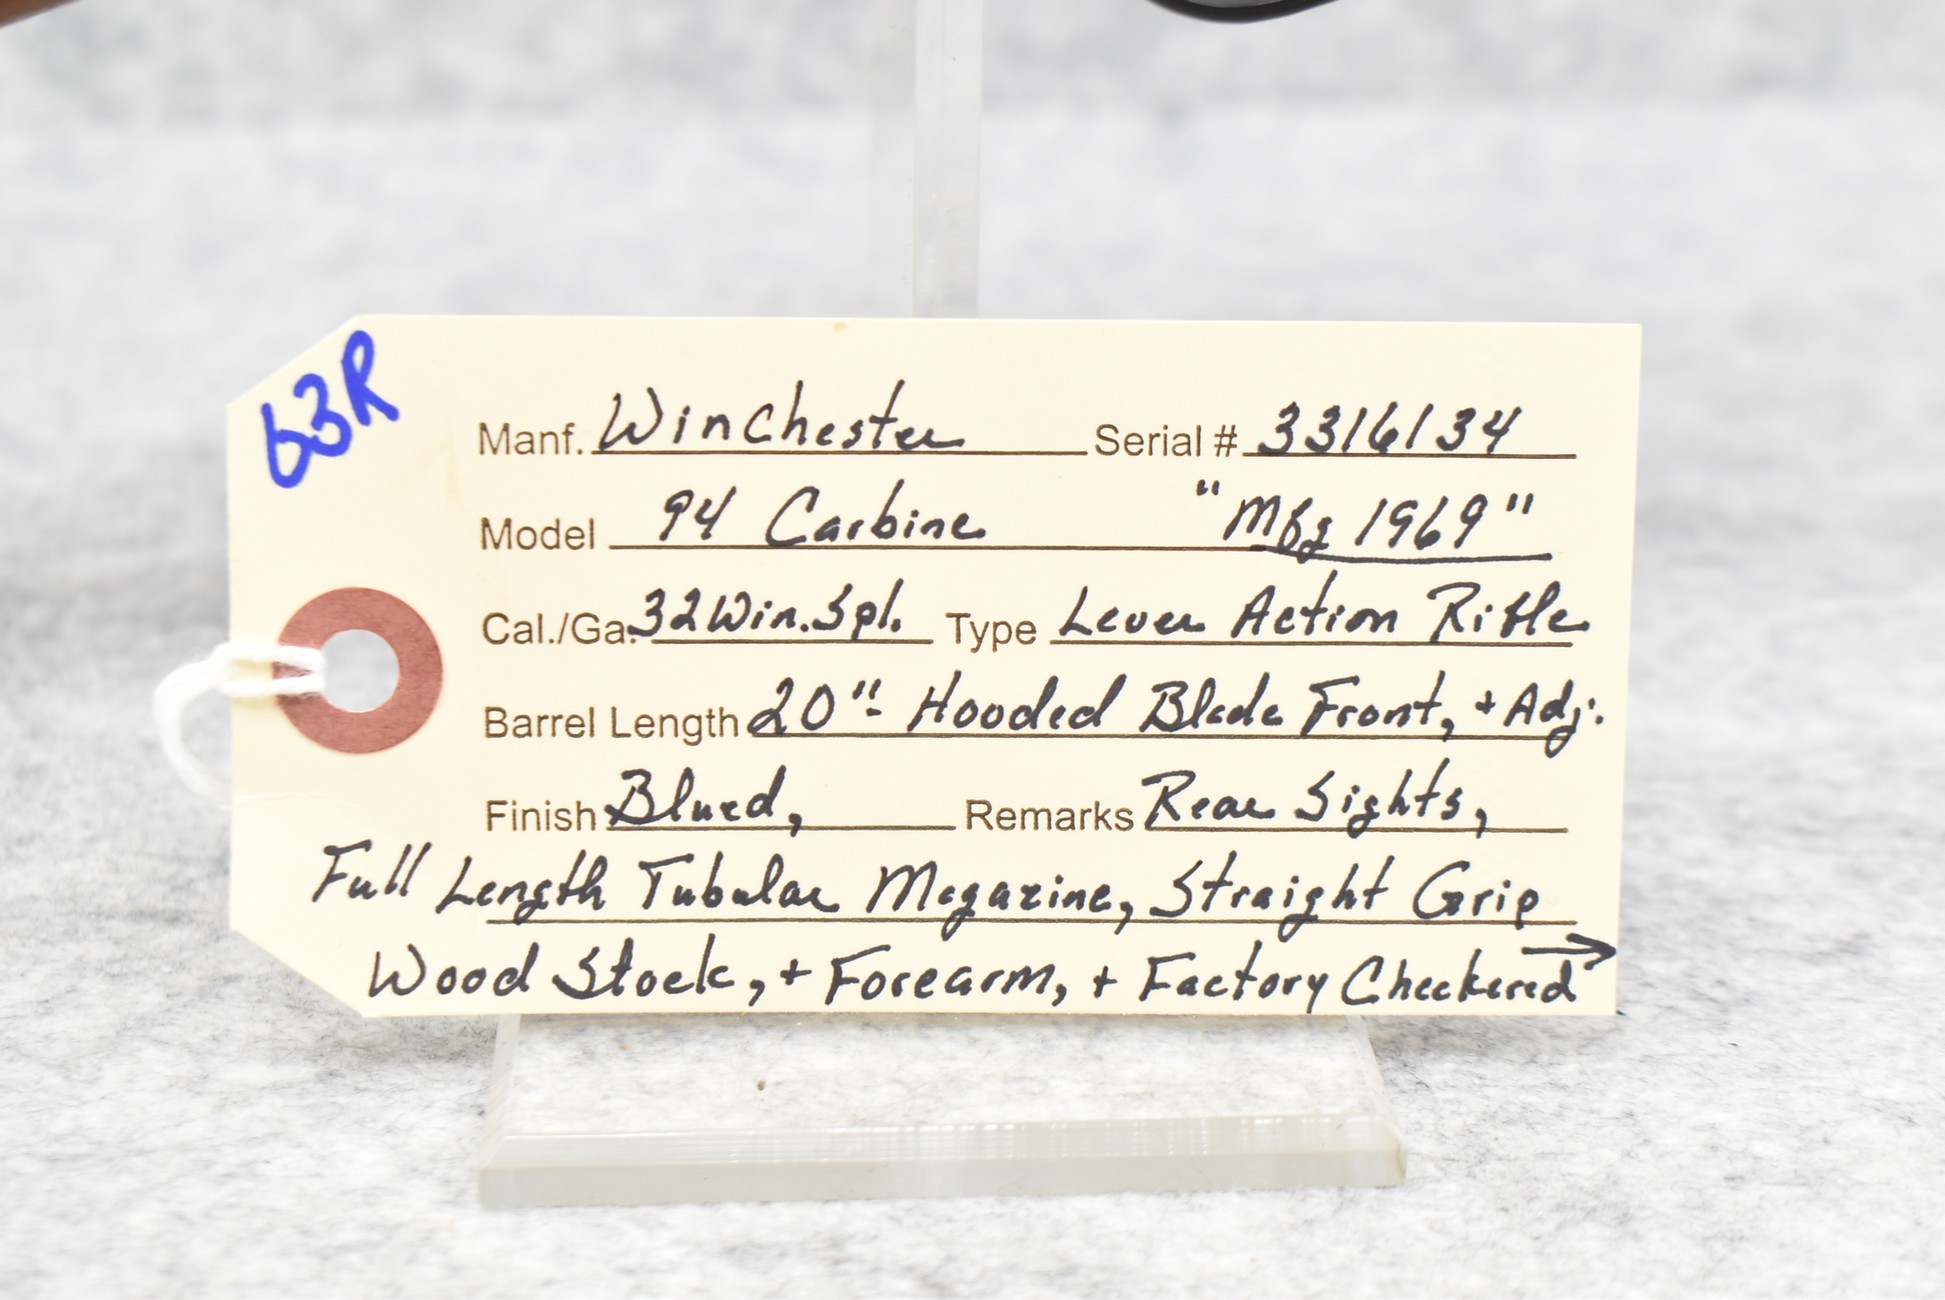 63R
Manf. Winchester Serial # 3316134
Model 94 Carbine "Mfg 1969"
Cal./Ga. 32 Win. Spl. Type Lever Action Rifle
Barrel Length 20"- Hooded Blade Front, + Adj.
Finish Blued, Remarks Rear Sights,
Full Length Tubular Magazine, Straight Grip
Wood Stock, + Forearm, + Factory Checkered →